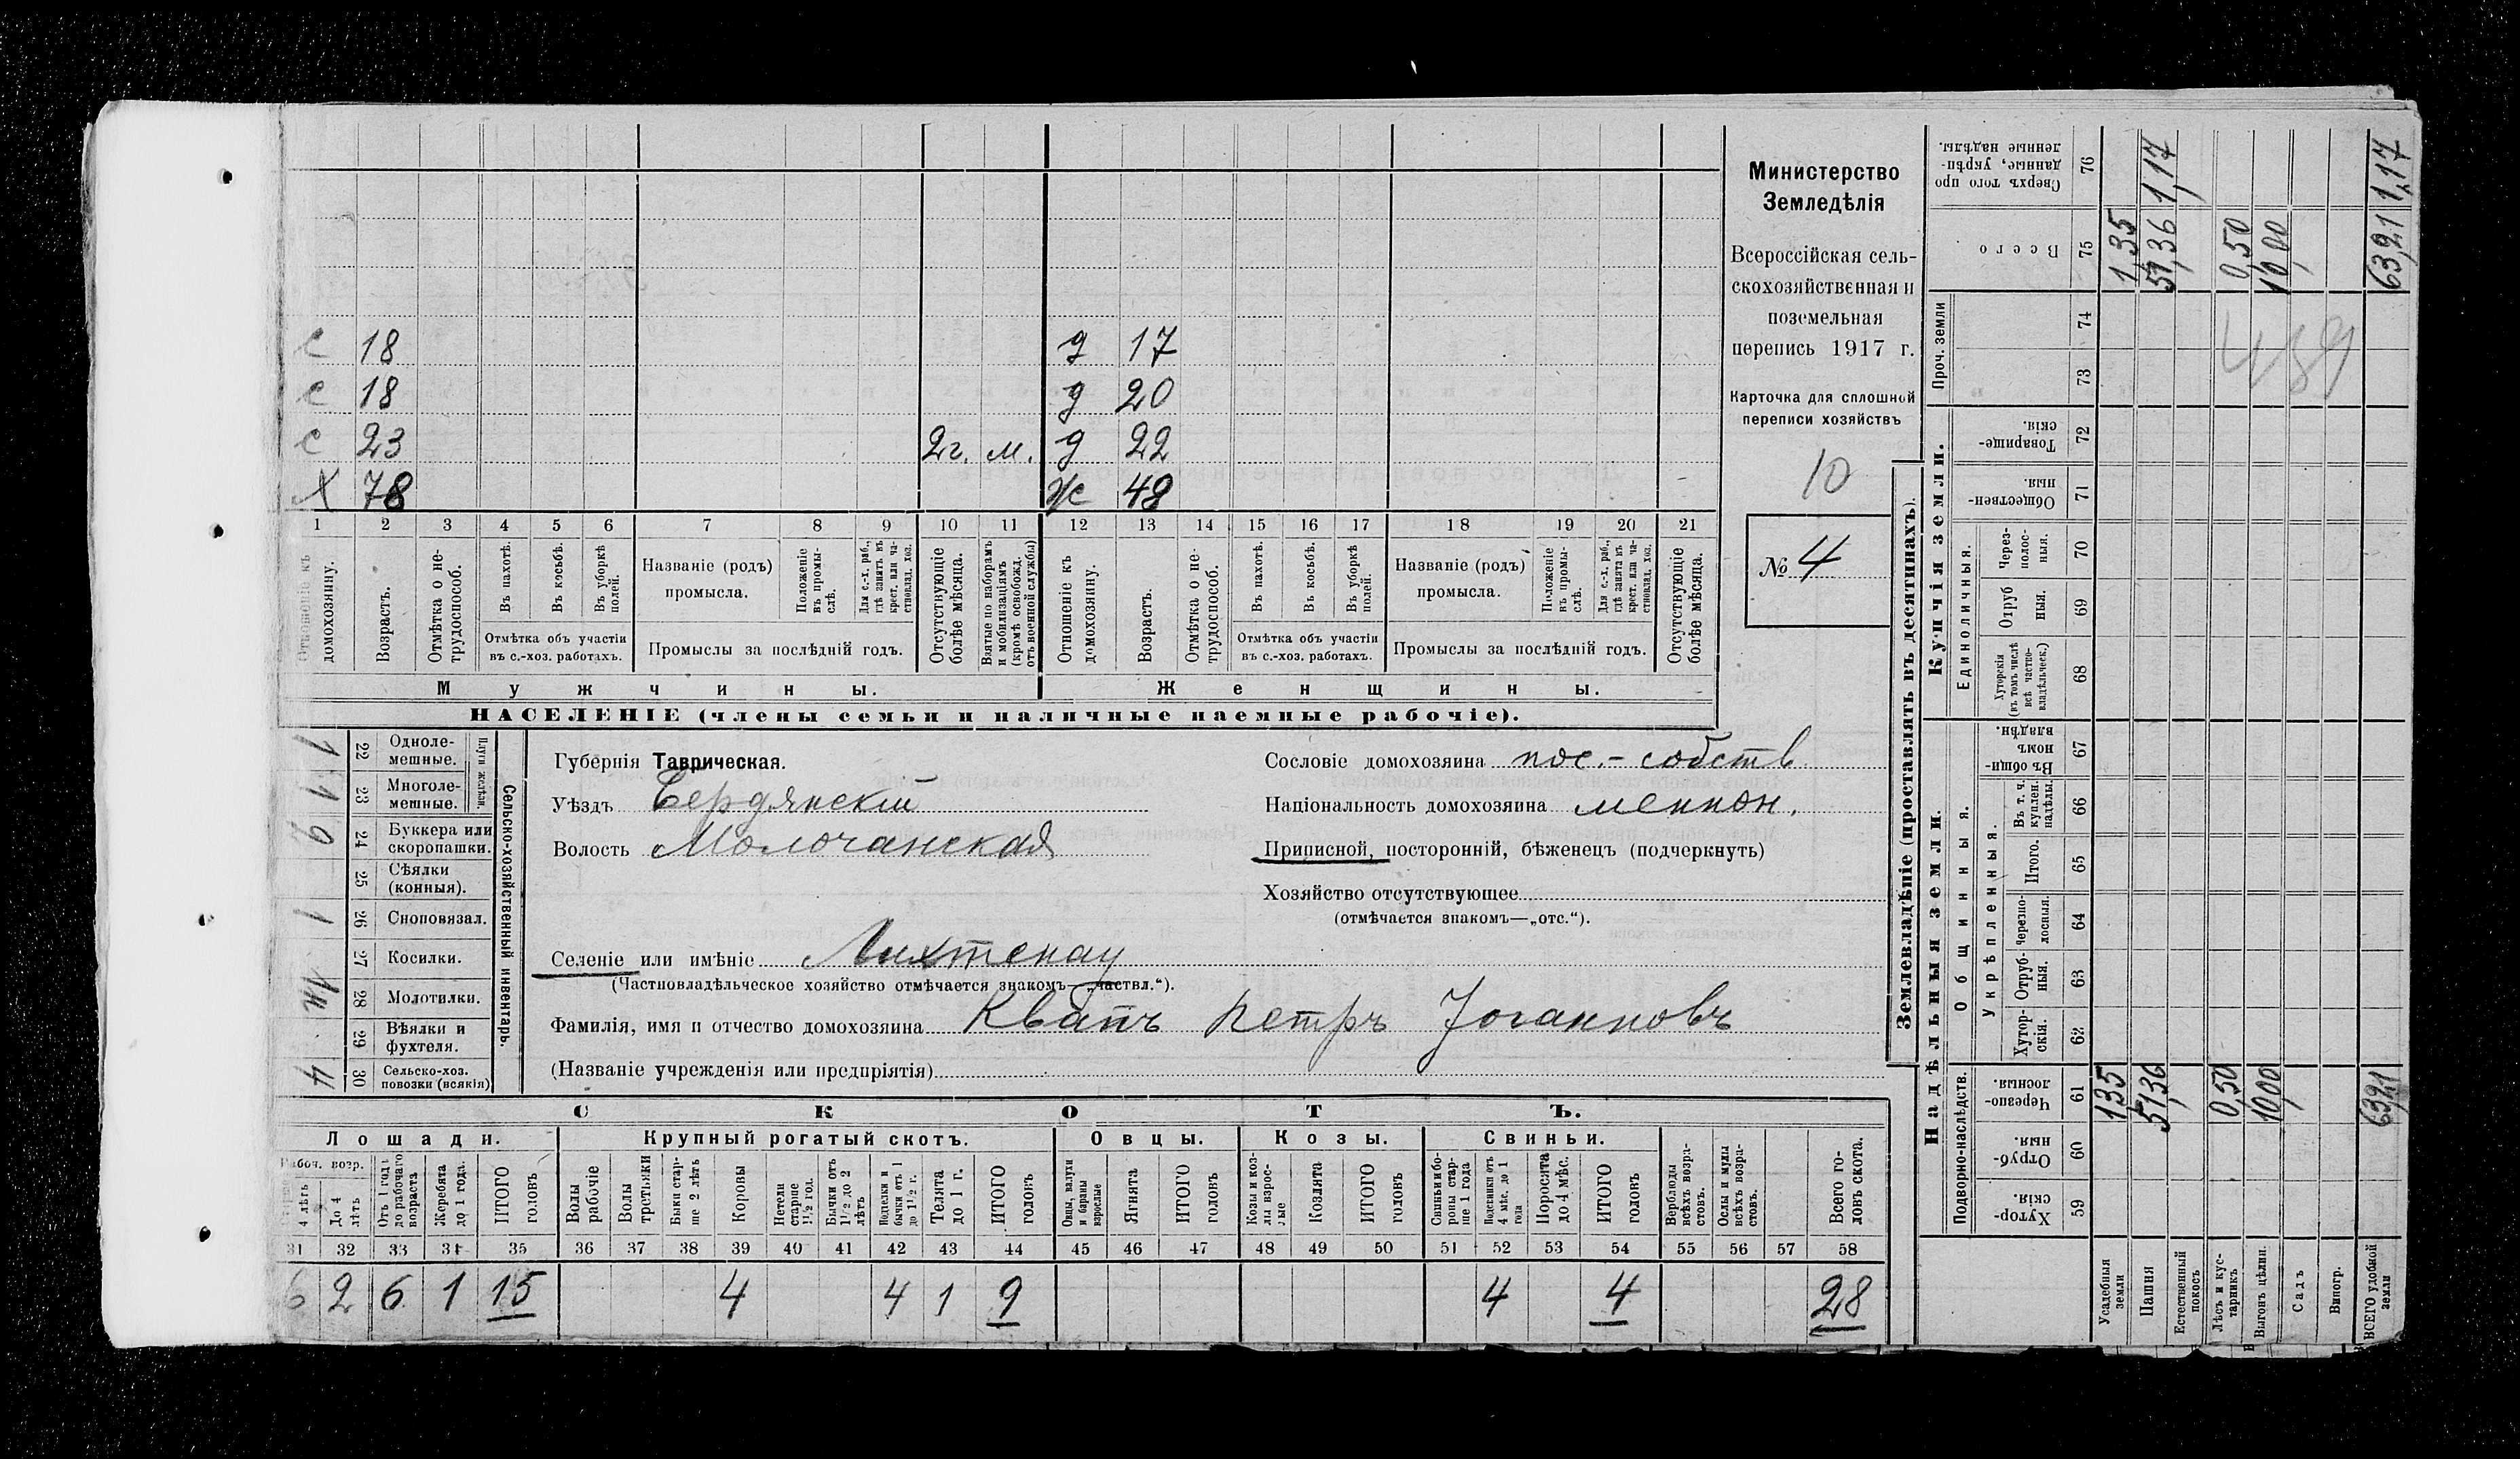 с 18 д 17
с 18 д 20
с 23 2г. м. д 22
х 78 ж 48
1 2 3 4 5 6 7 8 9 10 11 12 13 14 15 16 17 18 19 20 21
Отношеніе къ домохозяину.
Возрастъ.
Отмѣтка о не-
трудоспособ.
Въ пахотѣ.
Въ косьбѣ.
Въ уборкѣ
полей.
Отмѣтка объ участіи
въ с.-хоз. работахъ.
Названіе (родъ)
промысла.
Положеніе
въ промы-
слѣ.
Для с.-х. раб.,
гдѣ занятъ въ
крест. или ча-
стновлад. хоз.
Промыслы за послѣдній годъ.
Отсутствующіе
болѣе мѣсяца.
Взятые по наборамъ
и мобилизаціямъ
(кромѣ освобожд.
отъ военной службы)
Отношеніе къ
домохозяину.
Возрастъ.
Отмѣтка о не-
трудоспособ.
Въ пахотѣ.
Въ косьбѣ.
Въ уборкѣ
полей.
Отмѣтка объ участіи
въ с.-хоз. работахъ.
Названіе (родъ)
промысла.
Положеніе
въ промы-
слѣ.
Для с.-х. раб.,
гдѣ занята въ
крест. или ча-
стновлад. хоз.
Промыслы за послѣдній годъ.
Отсутствующіе
болѣе мѣсяца.
Мужчины. Женщины.
НАСЕЛЕНІЕ (члены семьи и наличные наемные рабочіе).
Министерство
Земледѣлія
Всероссійская сель-
скохозяйственная и
поземельная
перепись 1917 г.
Карточка для сплошной
переписи хозяйствъ
10
№ 4
1 22 Одноле-
мешные.
1 23 Многоле-
мешные.
Плуги желѣзн.
24 Буккера или
скоропашки.
25 Сѣялки
(конныя).
1 26 Сноповязал.
27 Косилки.
28 Молотилки.
29 Вѣялки и
фухтеля.
4 30 Сельско-хоз.
повозки (всякія)
Сельско-хозяйственный инвентарь.
Губернія Таврическая.
Уѣздъ Бердянскій
Волость Молочанская
Сословіе домохозяина пос.-собств
Національность домохозяина меннон.
Приписной, посторонній, бѣженецъ (подчеркнуть)
Хозяйство отсутствующее
(отмѣчается знакомъ—„отс.“).
Селеніе или имѣніе Лихтенау
(Частновладѣльческое хозяйство отмѣчается знакомъ—„частвл.“).
Фамилія, имя и отчество домохозяина Квапъ Петръ Іоганновъ
(Названіе учрежденія или предпріятія)
СКОТЪ.
Лошади. Крупный рогатый скотъ. Овцы. Козы. Свиньи.
Рабоч. возр.
4 лѣтъ
До 4
лѣтъ
Отъ 1 года
до рабочаго
возраста
Жеребята
до 1 года.
ИТОГО
головъ
Волы
рабочіе
Волы
третьяки
Быки стар-
ше 2 лѣтъ
Коровы
Нетели
старше
1½ год.
Бычки отъ
1½ до 2
лѣтъ
Нетелки и
бычки отъ 1
до 1½ г.
Телята
до 1 г.
ИТОГО
головъ
Овцы, валухи
и бараны
взрослые
Ягнята
ИТОГО
головъ
Козы и коз-
лы взрос-
лые
Козлята
ИТОГО
головъ
Свиньи и бо-
ровы стар-
ше 1 года
Подсвинки отъ
4 мѣс. до 1
года
Поросята
до 4 мѣс.
ИТОГО
головъ
Верблюды
всѣхъ возра-
стовъ.
Ослы и мулы
всѣхъ возра-
стовъ.
Всего го-
ловъ скота.
31 32 33 34 35 36 37 38 39 40 41 42 43 44 45 46 47 48 49 50 51 52 53 54 55 56 57 58
6 2 6 1 15 4 4 1 9 4 4 28
Землевладѣніе (проставлять въ десятинахъ).
Надѣльныя земли. Купчія земли. Проч. земли
Подворно-наслѣдств.
Общинныя.
Укрѣпленныя.
Единоличныя.
Сверхъ того про
данные, укрѣп-
ленные надѣлы.
76 1,17 1,17
Всего
75 1,35 51,36 0,50 10,00 63,21
74
73
459
Товарище-
скія.
72
Обществен-
ныя.
71
Через-
полос-
ныя.
70
Отруб
ныя.
69
Хуторскія
(въ томъ числѣ
всѣ частно-
владѣльческ.)
68
Въ общин-
номъ
владѣн.
67
Въ т. ч.
куплен.
надѣлы.
66
Итого.
65
Черезпо-
лосныя.
64
Отруб-
ныя.
63
Хутор-
скія.
62
Черезпо-
лосныя.
61 1,35 51,36 0,50 10,00 63,21
Отруб-
ныя.
60
Хутор-
скія.
59
Усадебныя
земли
Пашня
Естественный
покосъ
Лѣсъ и кус-
тарникъ
Выгонъ цѣлин.
Садъ
Виногр.
ВСЕГО удобной
земли